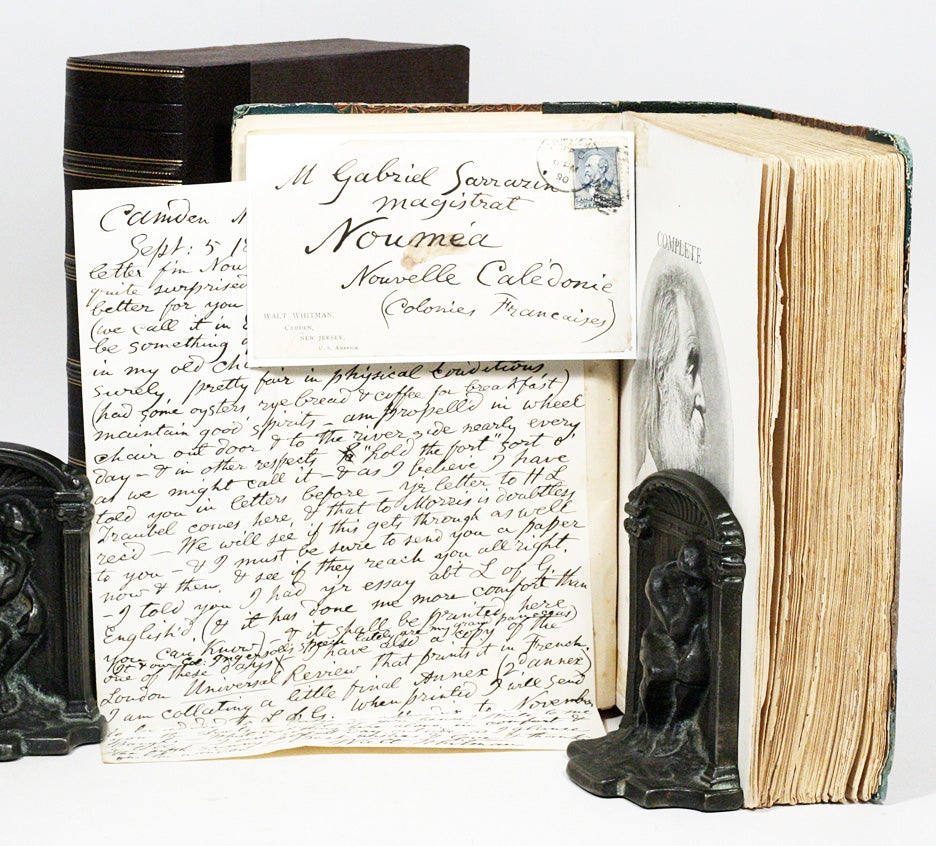 M Gabriel Sarrazin
magistrat
Nouméa
Nouvelle Calédonie
(Colonies Francaises)
WALT WHITMAN,
CAMDEN,
NEW JERSEY,
U. S. America.
90
COMPLETE
Camden N
Sept: 5 18
letter f'm Nou
quite surprised
better for you
(we call it in E
be something a
in my old ch
surely pretty fair in physical conditions
(had some oysters, rye bread & coffee for breakfast)
maintain good spirits - am propell'd in wheel
chair out door & to the river side nearly every
day - & in other respects "hold the fort" sort o'
as we might call it - & as I believe I have
told you in letters before - y'r letter to H L
Traubel comes here, & that to Morris is doubtless
rec'd - We will see if this gets through as well
to you - & I must be sure to send you a paper
now & then, & see if they reach you all right.
- I told you I had y'r essay abt L of G.
English'd (& it has done me more comfort than
you can know) - & it shall be printed here
one of these days - have also a copy of the
London Universal Review that prints it in French.
I am collating a little final Annex (2d annex)
to L of G. When printed I will send
to November